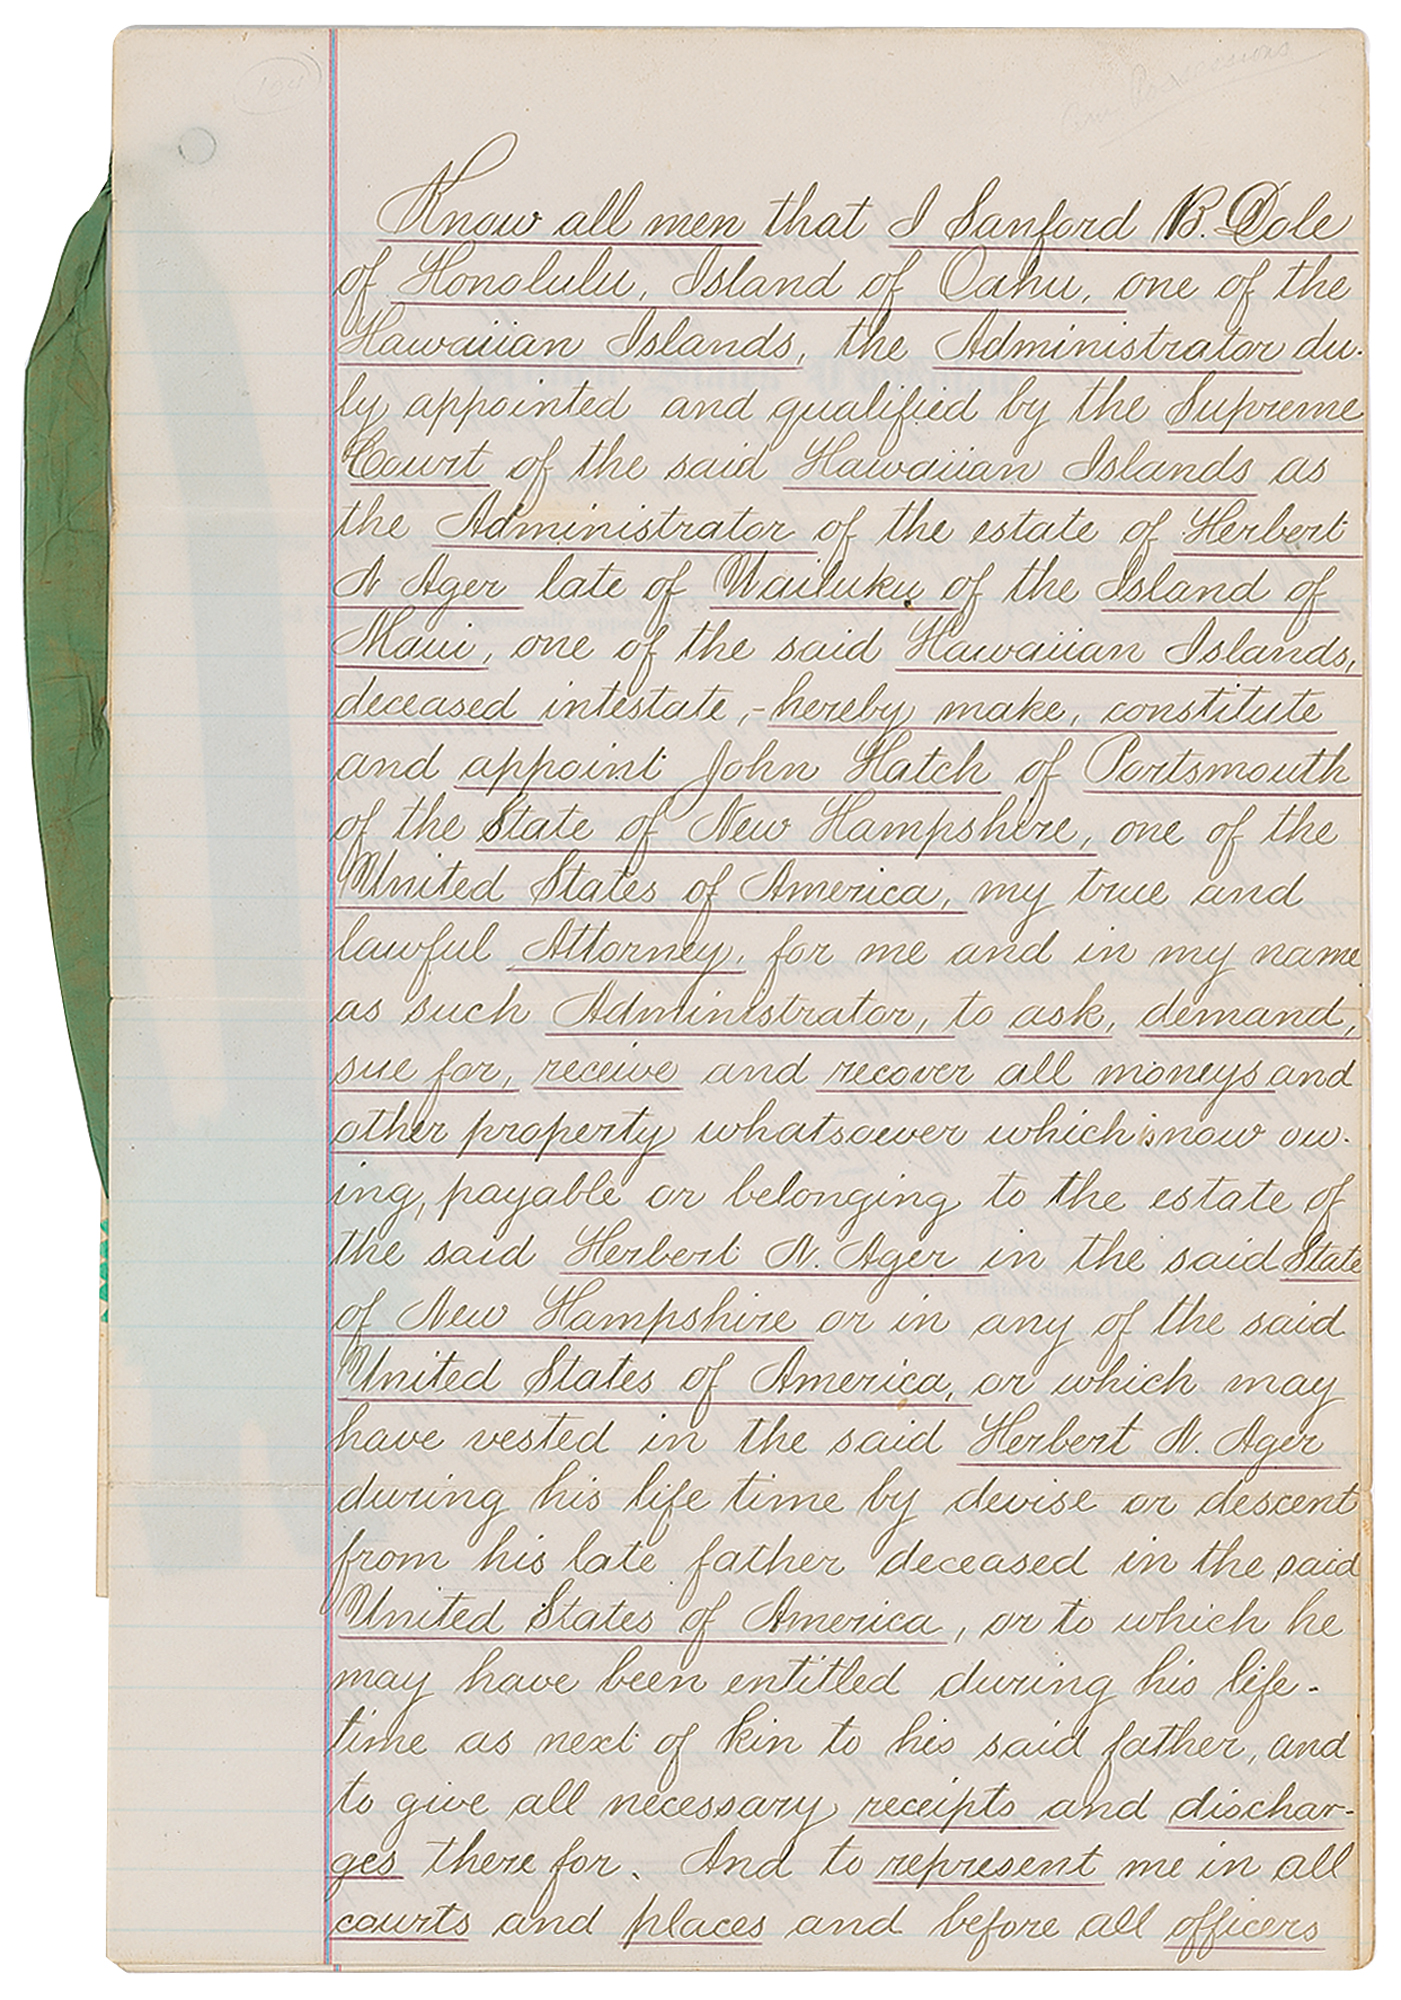 Know all men that I Sanford B. Dole
of Honolulu, Island of Oahu, one of the
Hawaiian Islands, the Administrator du-
ly appointed and qualified by the Supreme
Court of the said Hawaiian Islands as
the Administrator of the estate of Herbert
N Ager late of Wailuku of the Island of
Maui, one of the said Hawaiian Islands,
deceased intestate,- hereby make, constitute
and appoint John Hatch of Portsmouth
of the State of New Hampshire, one of the
United States of America, my true and
lawful Attorney, for me and in my name
as such Administrator, to ask, demand,
sue for, receive and recover all moneys and
other property whatsoever which is now ow-
ing, payable or belonging to the estate of
the said Herbert N. Ager in the said State
of New Hampshire or in any of the said
United States of America, or which may
have vested in the said Herbert N. Ager
during his life time by devise or descent
from his late father deceased in the said
United States of America, or to which he
may have been entitled during his life-
time as next of kin to his said father, and
to give all necessary receipts and dischar-
ges there for. And to represent me in all
courts and places and before all officers